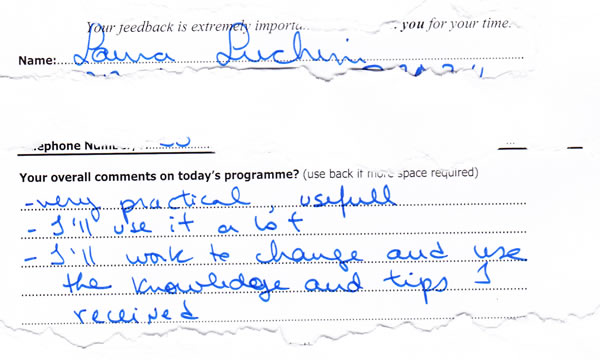 Your feedback is extremely importa you for your time.
Name: Laura Luchini
ephone Num
Your overall comments on today's programme? (use back if more space required)
- very practical, usefull
- I'll use it a lot
- I'll work to change and use
the knowledge and tips I
received